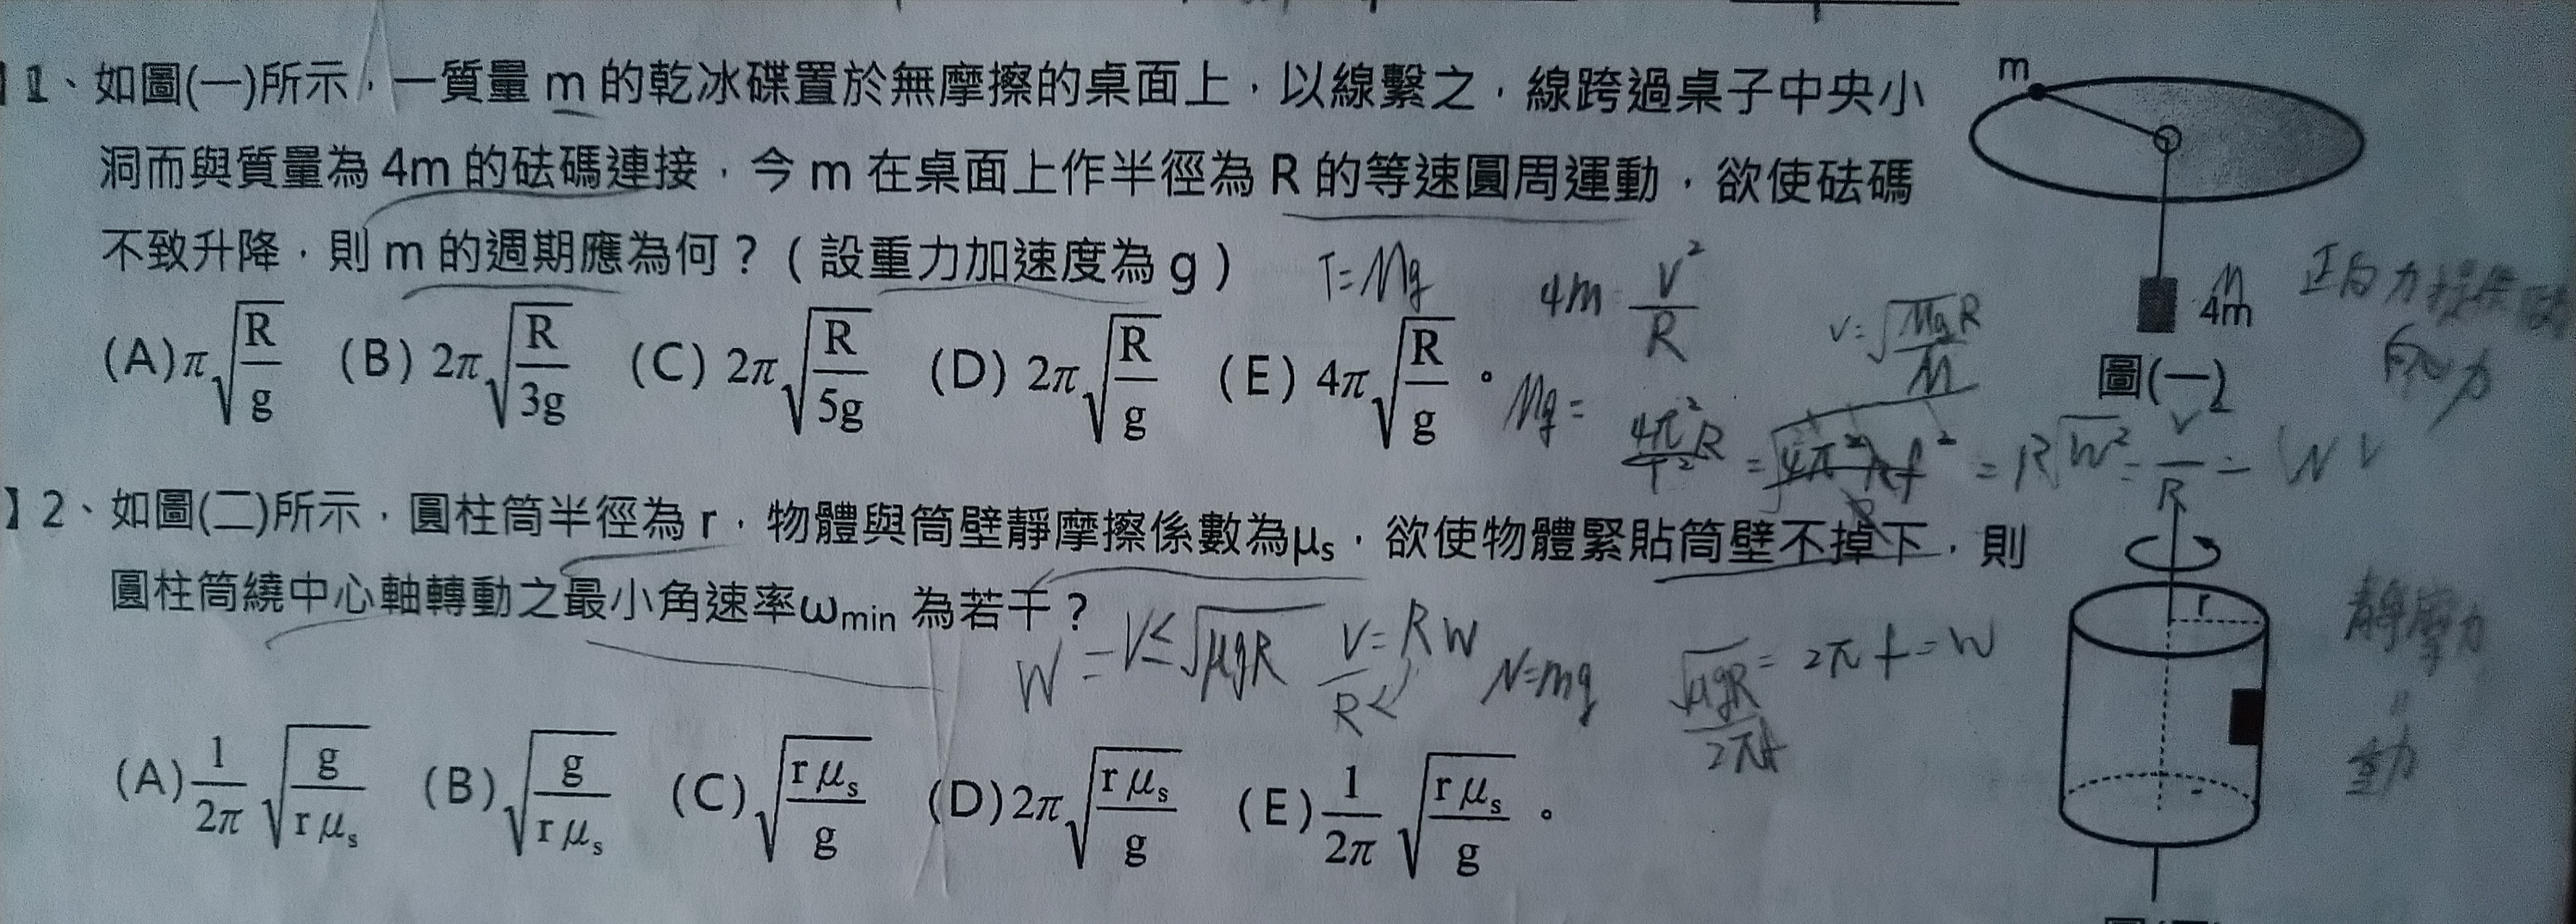 1、如圖(一)所示，一質量 m 的乾冰碟置於無摩擦的桌面上，以線繫之，線跨過桌子中央小
洞而與質量為 4m 的砝碼連接，今 m 在桌面上作半徑為 R 的等速圓周運動，欲使砝碼
不致升降，則 m 的週期應為何？(設重力加速度為 g)
T=Mg
4m V²/R
V=√(MgR/M)
(A) π√(R/g) (B) 2π√(R/3g) (C) 2π√(R/5g) (D) 2π√(R/g) (E) 4π√(R/g)。
Mg=
4π²/T² R
m
4m
圖(一)
】2、如圖(二)所示，圓柱筒半徑為 r，物體與筒壁靜摩擦係數為μs，欲使物體緊貼筒壁不掉下，則
圓柱筒繞中心軸轉動之最小角速率ωmin 為若干？
W = V≤√μgR
V=RW
N=mg
√μgR/2πf = 2πf=W
(A) 1/2π √(g/rμs) (B) √(g/rμs) (C) √(rμs/g) (D) 2π√(rμs/g) (E) 1/2π √(rμs/g)。
r